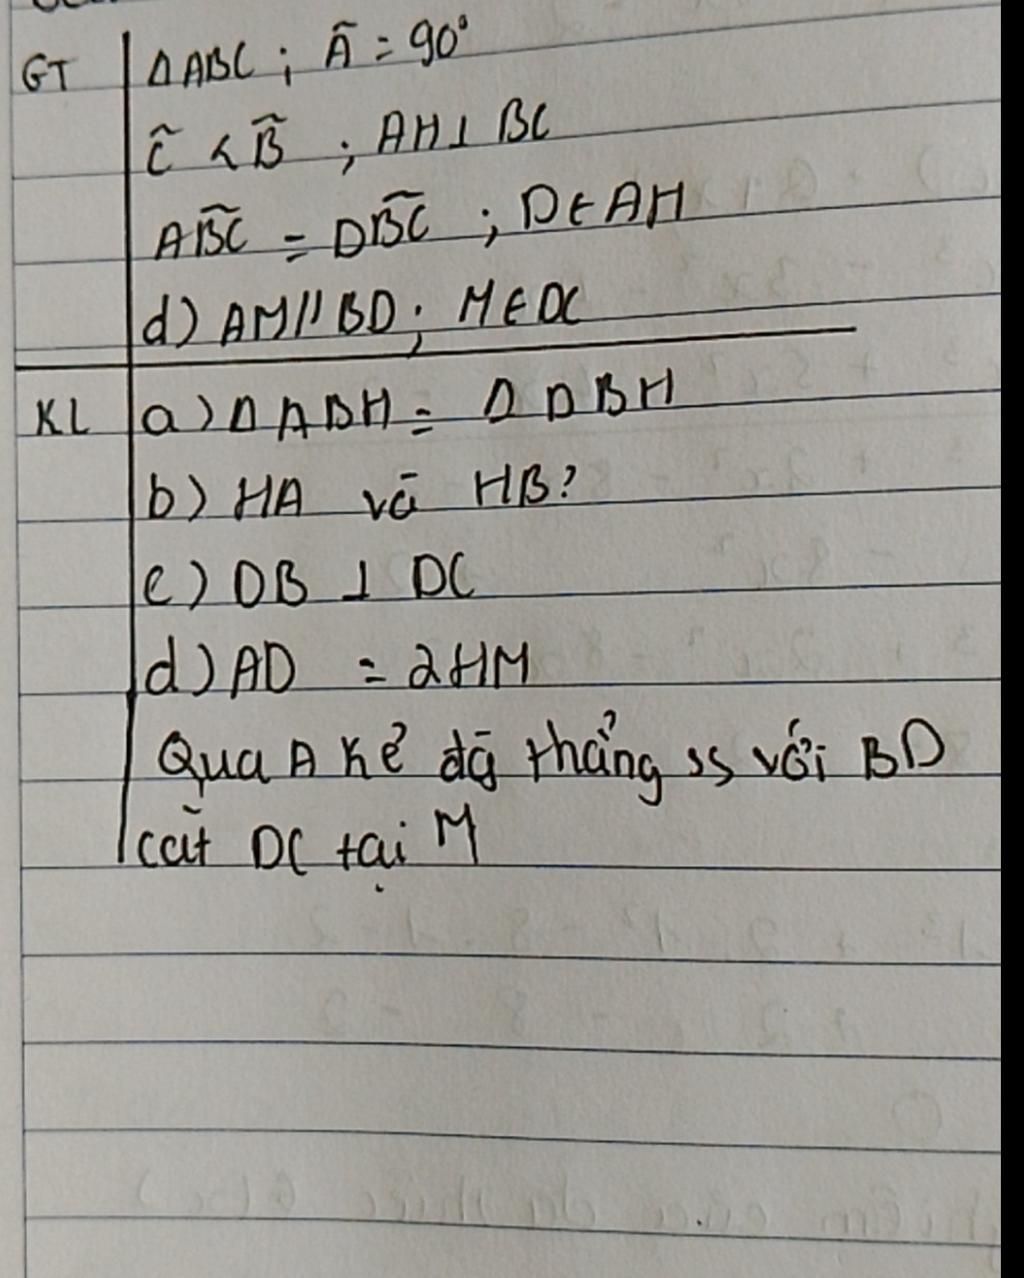 GT ΔABC ; Â = 90°
Ĉ < B̂ ; AH⊥ BC
AB̂C = DB̂C ; D∈AH
d) AM//BD ; M∈DC
KL a) Δ ABH = Δ DBH
b) HA và HB?
c) DB ⊥ DC
d) AD = 2HM
Qua A kẻ đg thẳng ss với BD
cắt DC tại M